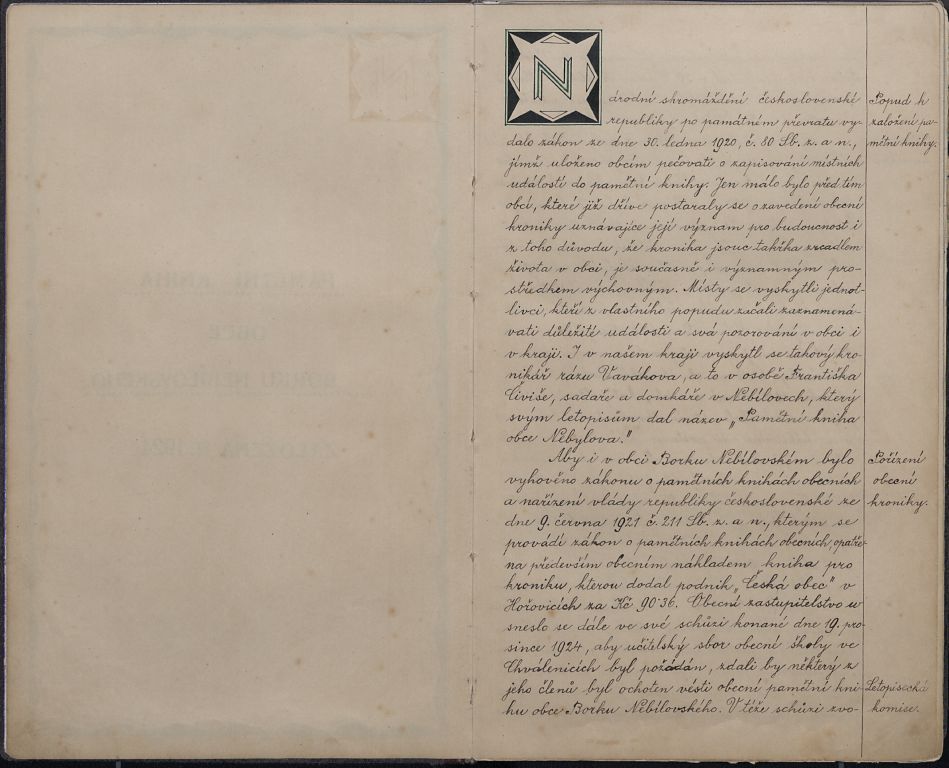 Národní shromáždění československé
republiky po památném převratu vy-
dalo zákon ze dne 30. ledna 1920, č. 80 Sb. z. a n.,
jímž uloženo obcím pečovati o zapisování místních
událostí do pamětní knihy. Jen málo bylo před tím
obcí, které již dříve postaraly se o zavedení obecní
kroniky uznávajíce její význam pro budoucnost i
z toho důvodu, že kronika jsouc takřka zrcadlem
života v obci, je současně i významným pro-
středkem výchovným. Místy se vyskytli jednot-
livci, kteří z vlastního popudu začali zaznamená-
vati důležité události a svá pozorování v obci i
v kraji. I v našem kraji vyskytl se takový kro-
nikář rázu Vavákova, a to v osobě Františka
Čiviše, sadaře a domkáře v Nebílovech, který
svým letopisům dal název „Pamětní kniha
obce Nebylova."
Aby i v obci Borku Nebílovském bylo
vyhověno zákonu o pamětních knihách obecních
a nařízení vlády republiky československé ze
dne 9. června 1921 č. 211 Sb. z. a n., kterým se
provádí zákon o pamětních knihách obecních, opatře-
na především obecním nákladem kniha pro
kroniku, kterou dodal podnik „Česká obec" v
Hořovicích za Kč 90·36. Obecní zastupitelstvo u-
sneslo se dále ve své schůzi konané dne 19. pro-
since 1924, aby učitelský sbor obecní školy ve
Chválenicích byl požádán, zdali by některý z
jeho členů byl ochoten vésti obecní pamětní kni-
hu obce Borku Nebílovského. V téže schůzi zvo-
Popud k
založení pa-
mětní knihy.
Pořízení
obecní
kroniky.
Letopisecká
komise.